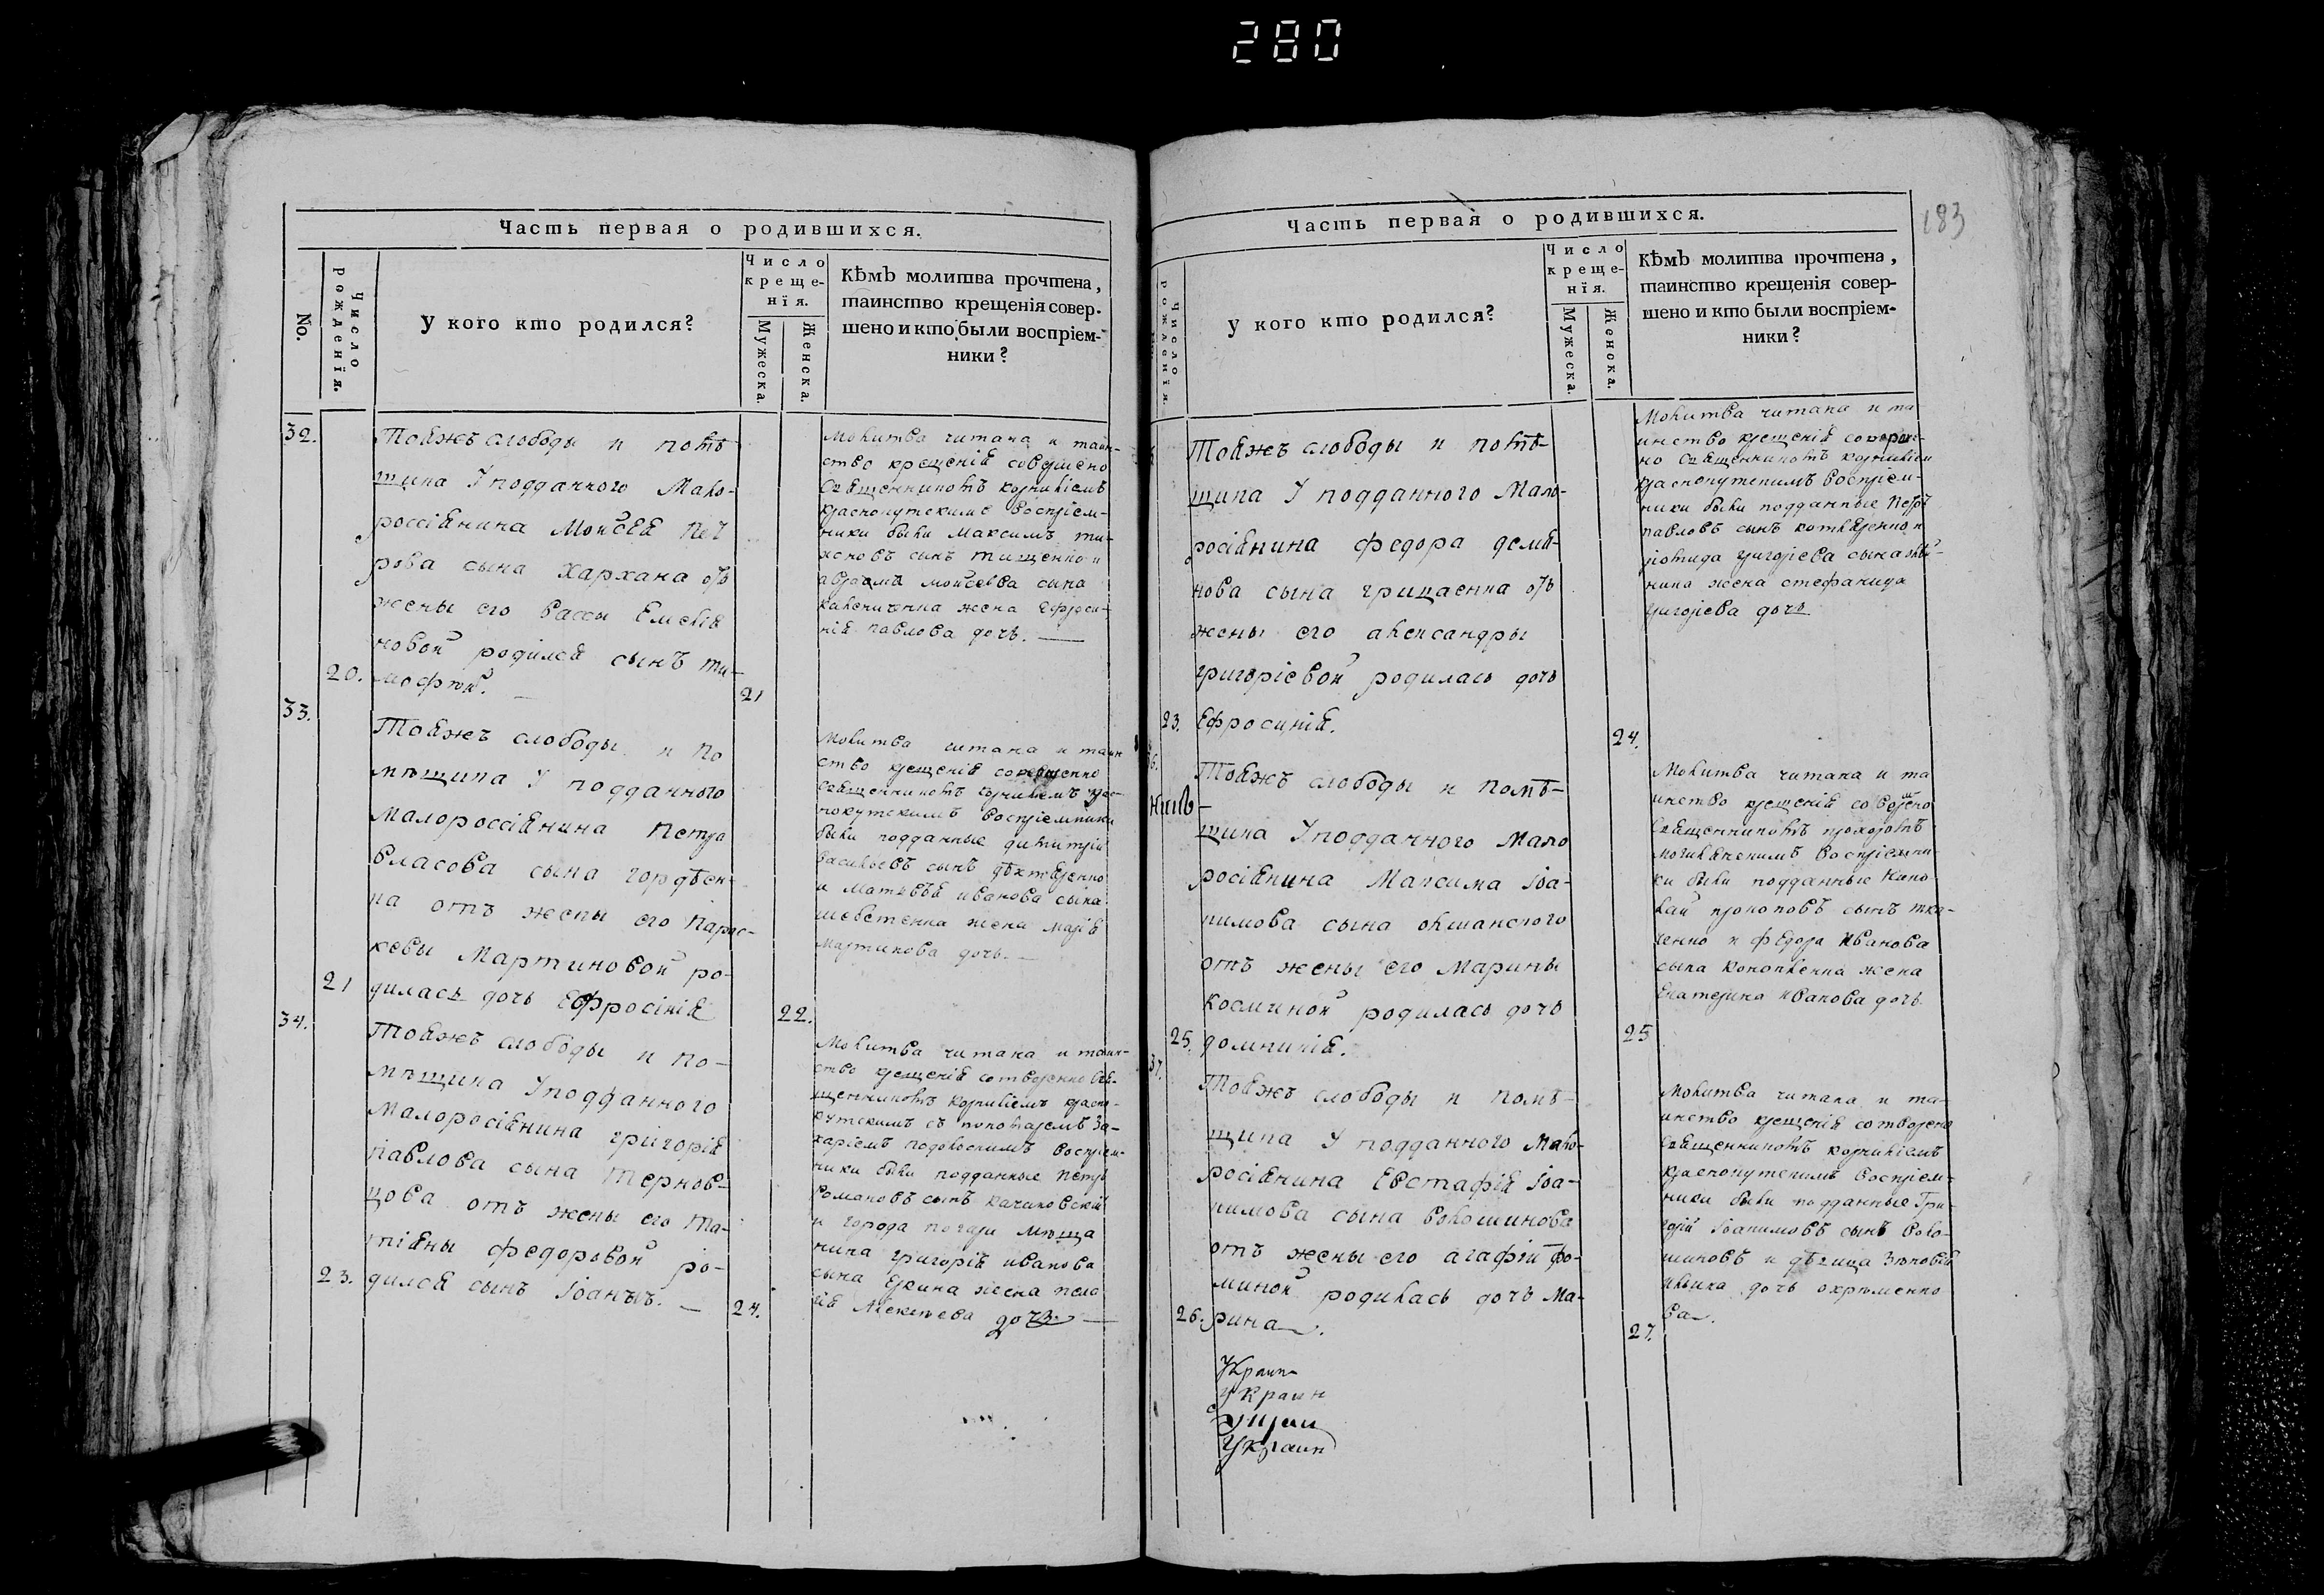 280
Часть первая о родившихся.
No.
Число рожденїя.
У кого кто родился?
Число креще-
нїя.
Мужеска.
Женска.
Кѣмъ молитва прочтена,
таинство крещенїя совер-
шено и кто были воспрїем-
ники?
32.
Тояжъ слободы и помѣ-
щика У подданного Мало-
россіянина Моисея Пет
рова сына Хархана отъ
жены его Вассы Емелія
новой родился сынъ ти-
20. мофѣй.
21
Молитва читана и таин-
ство крещенія совершено
Священникомъ Корниліемъ
краснокутскимъ Воспріем-
ники были Максимъ ти-
хоновъ сынъ тищенко и
моисеева сына
жена Ефроси-
нія павлова дочь.
33.
Тояжъ слободы и по
мѣщика У подданного
малороссіянина Петра
Власова сына гордѣен-
ка отъ жены его Парас-
кевы Мартиновой ро-
21 дилась дочь Ефросінія
22.
Молитва читана и таин
ство крещенія совершенно
Священникомъ Корниліемъ крас-
нокутскимъ Воспріемники
были подданные димитрій
васильевъ сынъ дѣхтяренко
и Матвѣя иванова сына
шевстенка жена марія
мартинова дочь.
34.
Тояжъ слободы и по-
мѣщика У подданного
малоросіянина григорія
павлова сына Тернов-
цова отъ жены его та-
тіяны федоровой ро-
23. дился сынъ Іоаннъ.
24.
Молитва читана и таин-
ство крещенія сотворенно Свя-
щенникомъ Корниліемъ красно-
кутскимъ съ пономаремъ За-
харіемъ подольскимъ Воспріем-
ники были подданные Петръ
Романовъ сынъ качановскій
и города мѣща
нина григорія иванова
сына жена пела
гія Алексѣева дочь
183
Часть первая о родившихся.
Число рожденїя.
У кого кто родился?
Число креще-
нїя.
Мужеска.
Женска.
Кѣмъ молитва прочтена,
таинство крещенїя совер-
шено и кто были воспрїем-
ники?
Тояжъ слободы и помѣ-
щика У подданного Мало-
росіянина федора демя-
нова сына грицаенка отъ
жены его александры
григоріевой родилась дочь
23. Ефросинія.
24.
Молитва читана и та
инство крещенія соверше-
но Священникомъ Корниліем
краснокутскимъ Воспріем-
ники были подданные Петръ
павловъ сынъ котляренко и
григорієва сына
жена стефанида
григорієва дочь
36.
Тояжъ слободы и помѣ-
щика У подданного Мало
росіянина Максима Іоа-
кимова сына олшанского
отъ жены его Марины
косминой родилась дочь
25. домникія.
25
Молитва читана и та
инство крещенія совершено
Священникомъ прохоромъ
могилянскимъ Воспріемни-
ки были подданные Нико
лай прокоповъ сынъ тка-
ченко и федора Иванова
сына Коноплєнка жена
Екатерина иванова дочь
37.
Тояжъ слободы и помѣ-
щика У подданного Мало-
росіянина Евстафія Іоа-
кимова сына Волошинова
отъ жены его агафіи фо-
миной родилась дочь Ма-
26. рина.
27.
Молитва читана и та-
инство крещенія сотворено
Священникомъ корниліемъ
краснокутскимъ Воспріем-
ники были подданные Гри-
горій Іоакимовъ сынъ Воло-
шиновъ и дѣвица Зѣновія
ильина дочь охрѣменко
ва.
Украин
украин
Украин